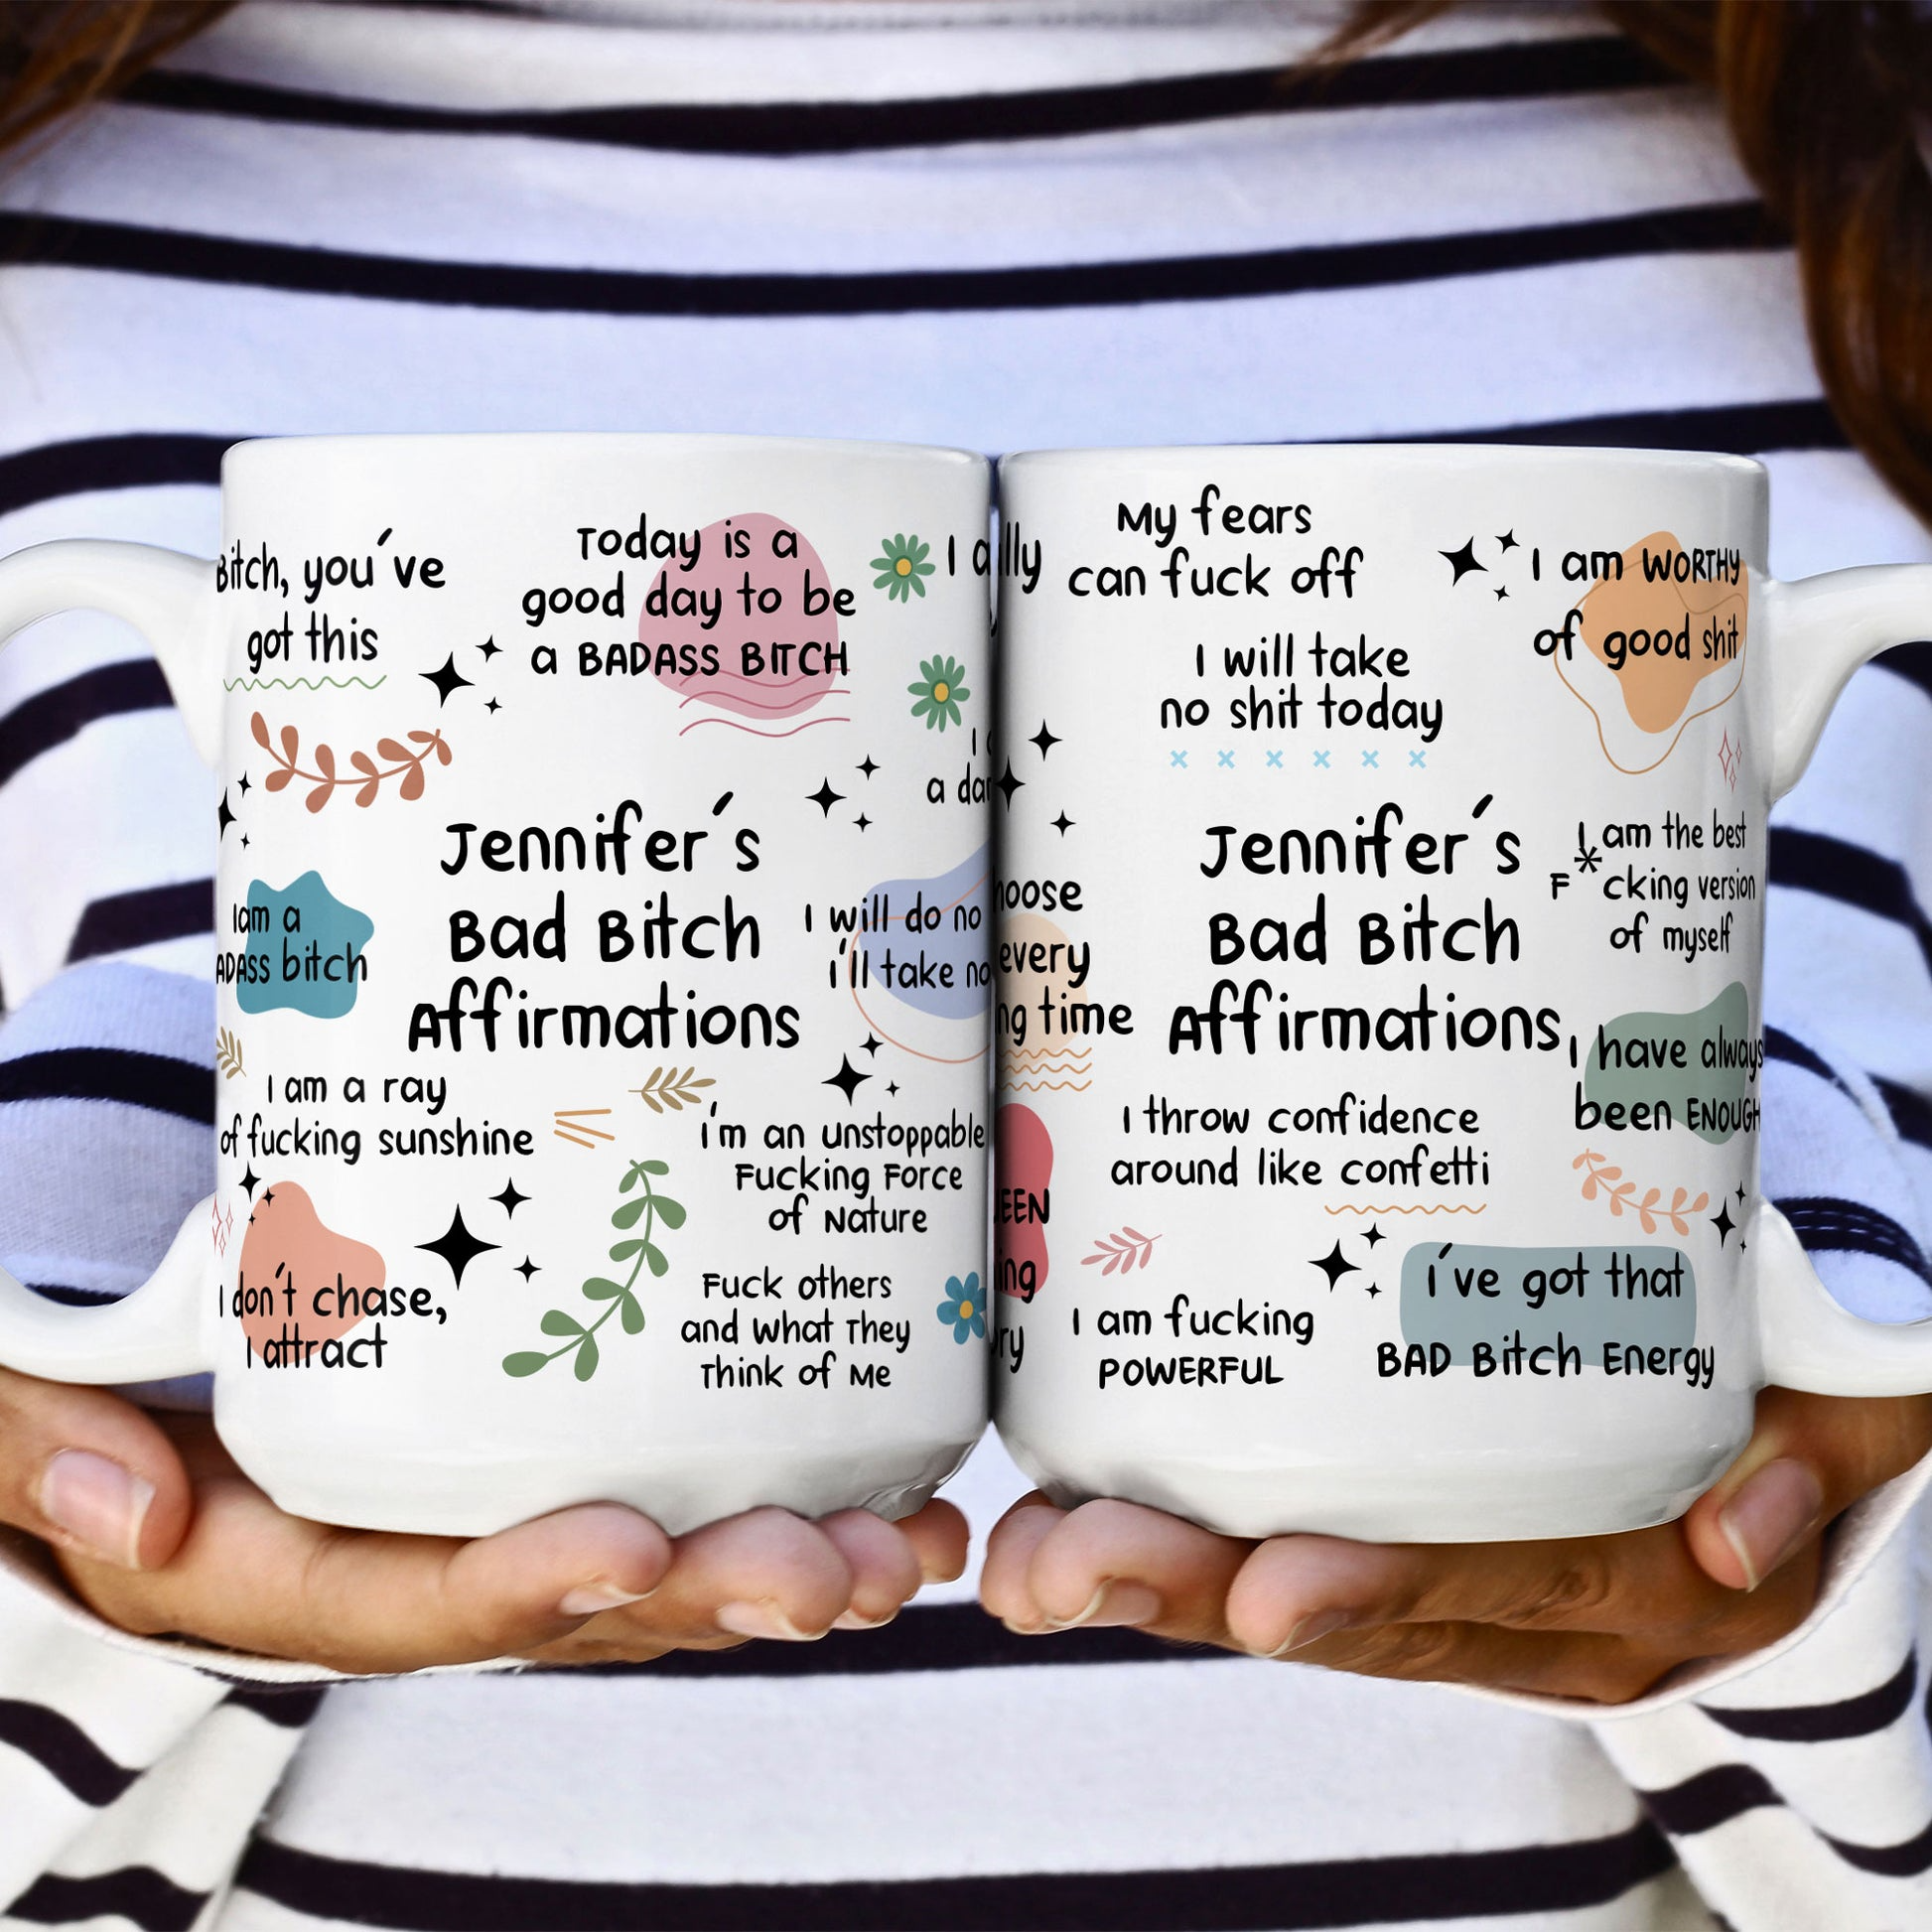 Bitch, you've
got this
Today is a
good day to be
a BADASS BITCH
Jennifer's
Bad Bitch
Affirmations
I am a
ADASS bitch
I will do no
i'll take no
I am a ray
of fucking sunshine
i'm an unstoppable
Fucking Force
of Nature
I don't chase,
I attract
Fuck others
and What They
Think of Me
My fears
can fuck off
I will take
no shit today
I am WORTHY
of good shit
Jennifer's
Bad Bitch
Affirmations
I am the best
F*cking version
of myself
every
time
I have always
been ENOUGH
I throw confidence
around like confetti
I am fucking
POWERFUL
i've got that
BAD Bitch Energy